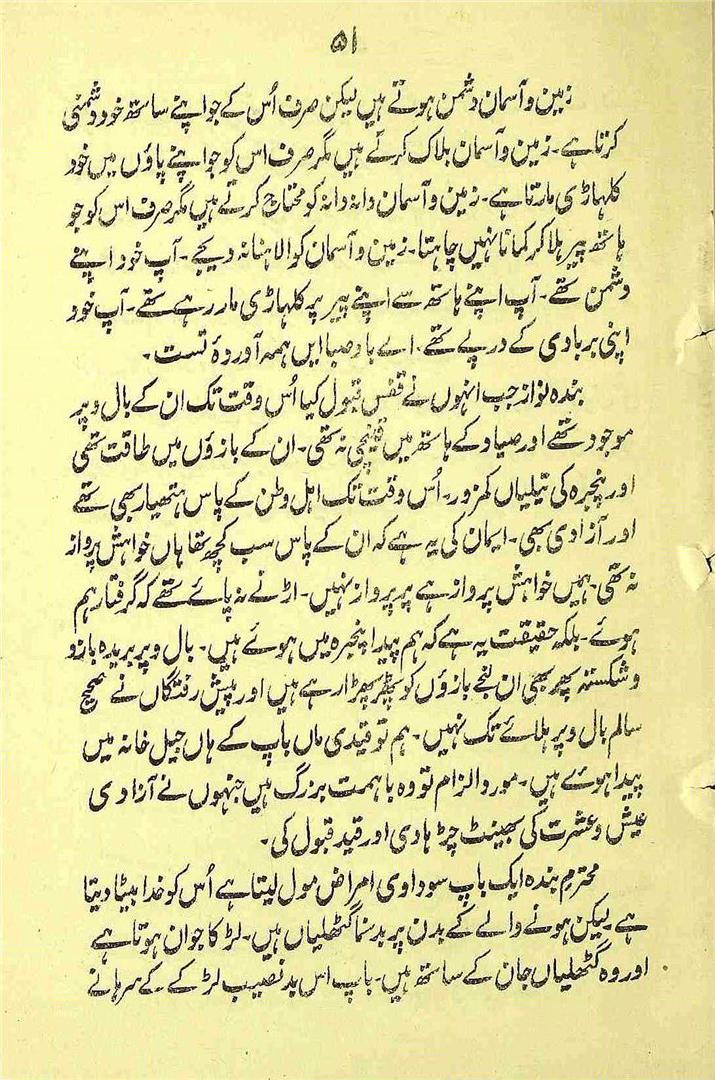 ۵۱
زمین و آسمان دشمن ہوتے ہیں لیکن صرف اُس کے جو اپنے ساتھ خود دشمنی
کرتا ہے۔ زمین و آسمان ہلاک کرتے ہیں مگر صرف اس کو جو اپنے پاؤں میں خود
کلہاڑی مارتا ہے۔ زمین و آسمان دانہ دانہ کو محتاج کرتے ہیں مگر صرف اس کو جو
ہاتھ پیر ہلا کر کمانا نہیں چاہتا۔ زمین و آسمان کو الاہنا نہ دیجے۔ آپ خود اپنے
دشمن تھے۔ آپ اپنے ہاتھ سے اپنے پیر پر کلہاڑی مار رہے تھے۔ آپ خود
اپنی بربادی کے درپے تھے۔ اے باد صبا ایں ہمہ آوردۂ تست۔
بندہ نواز جب انہوں نے قفس قبول کیا اُس وقت تک ان کے بال و پر
موجود تھے اور صیاد کے ہاتھ میں قینچی نہ تھی۔ ان کے بازوؤں میں طاقت تھی
اور پنجرہ کی تیلیاں کمزور۔ اُس وقت تک اہل وطن کے پاس ہتھیار بھی تھے
اور آزادی بھی۔ ایمان کی یہ ہے کہ ان کے پاس سب کچھ تھا ہاں خواہش پرواز
نہ تھی۔ ہمیں خواہش پرواز ہے پر پرواز نہیں۔ اڑنے نہ پائے تھے کہ گرفتار ہم
ہوئے۔ بلکہ حقیقت یہ ہے کہ ہم پیدا پنجرہ میں ہوئے ہیں۔ بال و پر بریدہ بازو
و شکستہ پھر بھی ان لنجے بازوں کو پھڑپھڑا رہے ہیں اور پیش رفتگاں نے صحیح
سالم بال و پر ہلائے تک نہیں۔ ہم تو قیدی ماں باپ کے ہاں جیل خانہ میں
پیدا ہوئے ہیں۔ مورد الزام تو وہ باہمت بزرگ ہیں جنہوں نے آزادی
عیش و عشرت کی بھینٹ چڑہا دی اور قید قبول کی۔
محترم بندہ ایک باپ سوداوی امراض مول لیتا ہے اُس کو خدا بیٹا دیتا
ہے لیکن ہونے والے کے بدن پر بدنما گٹھلیاں ہیں۔ لڑکا جوان ہوتا ہے
اور وہ گٹھلیاں جان کے ساتھ ہیں۔ باپ اس بدنصیب لڑکے کے سرہانے